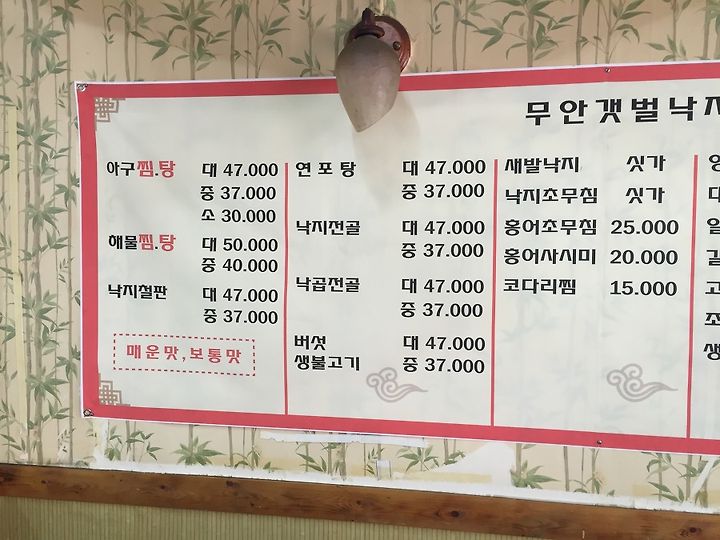 무안갯벌낙지
아구찜.탕 대 47.000
중 37.000
소 30.000
해물찜.탕 대 50.000
중 40.000
낙지철판 대 47.000
중 37.000
매운맛,보통맛
연포탕 대 47.000
중 37.000
낙지전골 대 47.000
중 37.000
낙곱전골 대 47.000
중 37.000
버섯 대 47.000
생불고기 중 37.000
새발낙지 싯가
낙지초무침 싯가
홍어초무침 25.000
홍어사시미 20.000
코다리찜 15.000